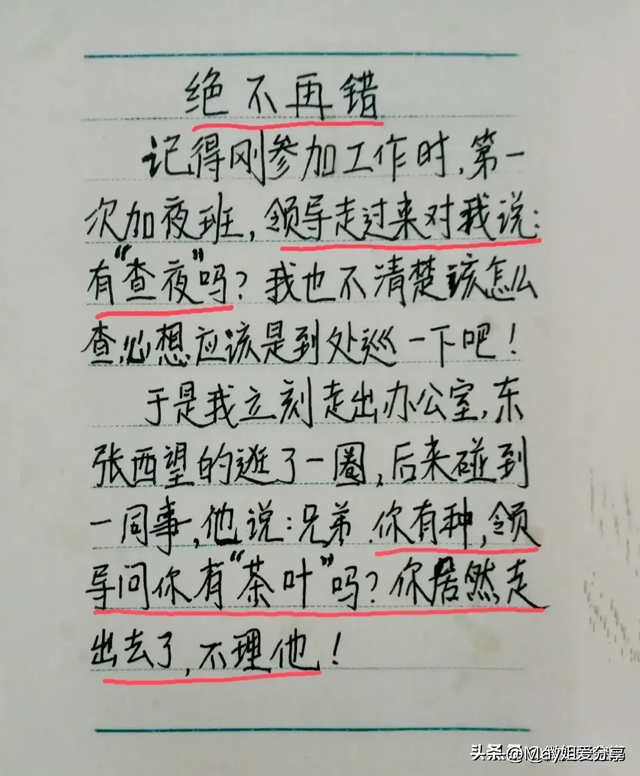 绝不再错
记得刚参加工作时,第一
次加夜班,领导走过来对我说:
有“查夜”吗?我也不清楚该怎么
查,心想应该是到处巡一下吧!
于是我立刻走出办公室,东
张西望的逛了一圈,后来碰到
一同事,他说:兄弟.你有种,领
导问你有“茶叶”吗?你居然走
出去了,不理他!
头条@May姐爱分享